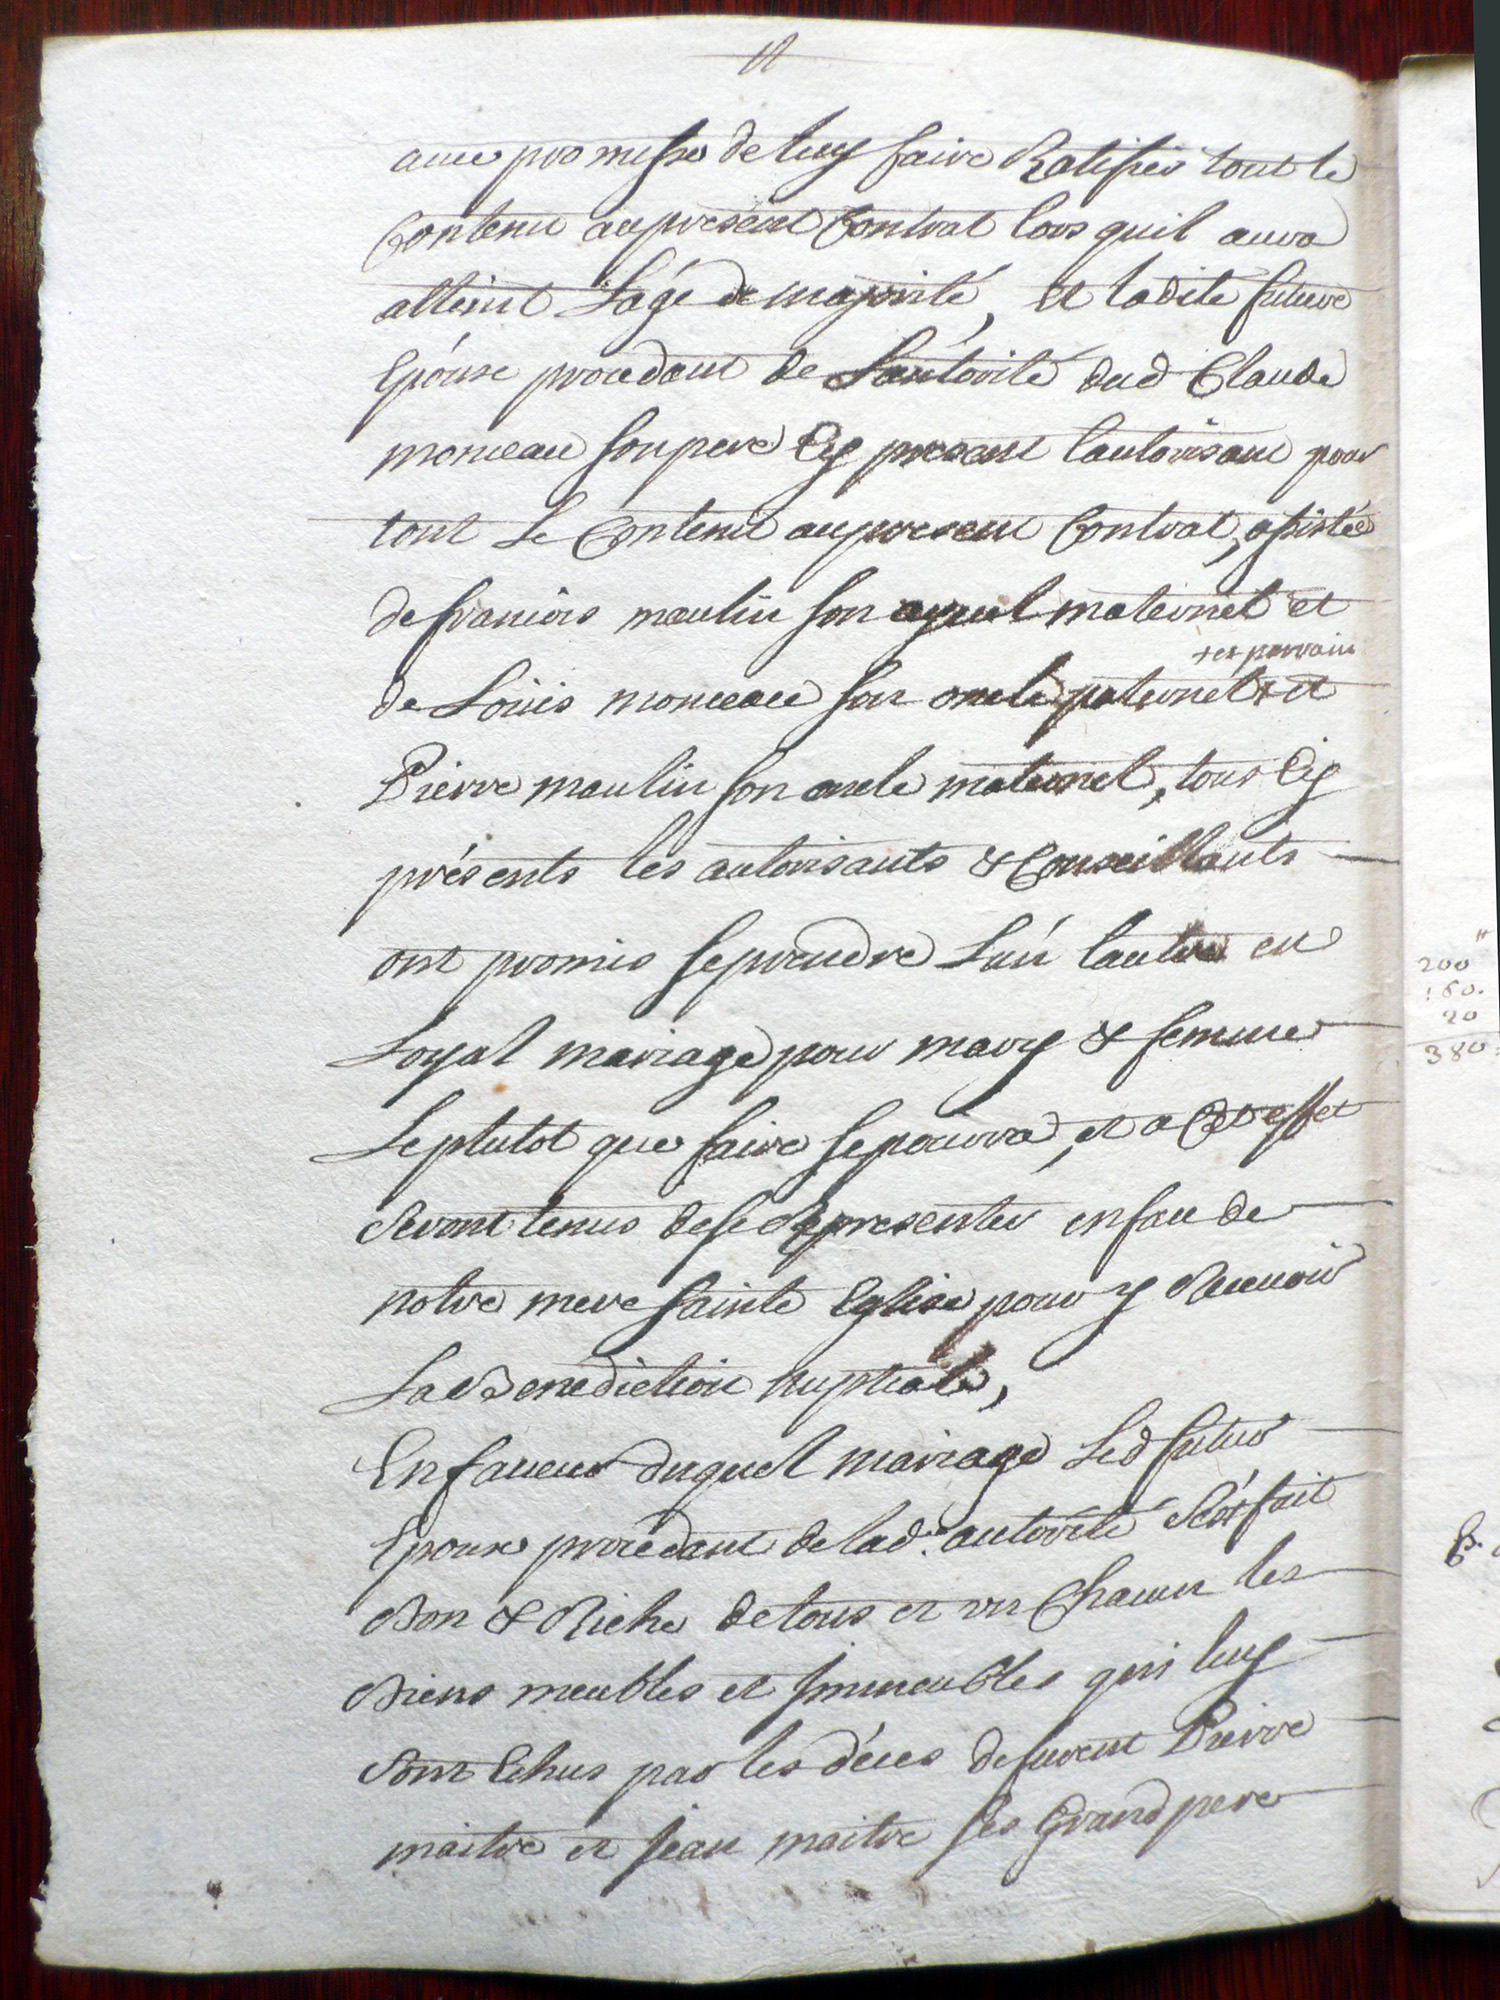 avec promesse de luy faire Ratifier tout le
Contenu au présent Contrat lors quil aura
atteint L'agé de majorité, et ladite future
Epouse procedant de L'autorité dud Claude
monceau son pere Cy present l'autorisant pour
tout Le Contenu au present Contrat, assistée
de francois moulin son ayeul maternel et
+ et parrain
de Loüis monceau son oncle paternel + et
Pierre moulin son oncle maternel, tous Cy
présents les autorisants & Conseillants
ont promis se prendre L'un l'autre en
Loyal mariage pour mary & femme
Le plutot que faire se pourra, et a Cet effet
Seront tenus de se Representer en face de
notre mere Sainte Eglise pour y Recevoir
La Benediction nuptiale,
En faveur duquel mariage Led futur
Epoux procedant de lad. autorité S'est fait
Bon & Riche de tous et un Chacun les
Biens meubles et immeubles qui luy
Sont Echus par les déces de furent Pierre
maitre et jean maitre ses Grand pere
200
160.
20
380